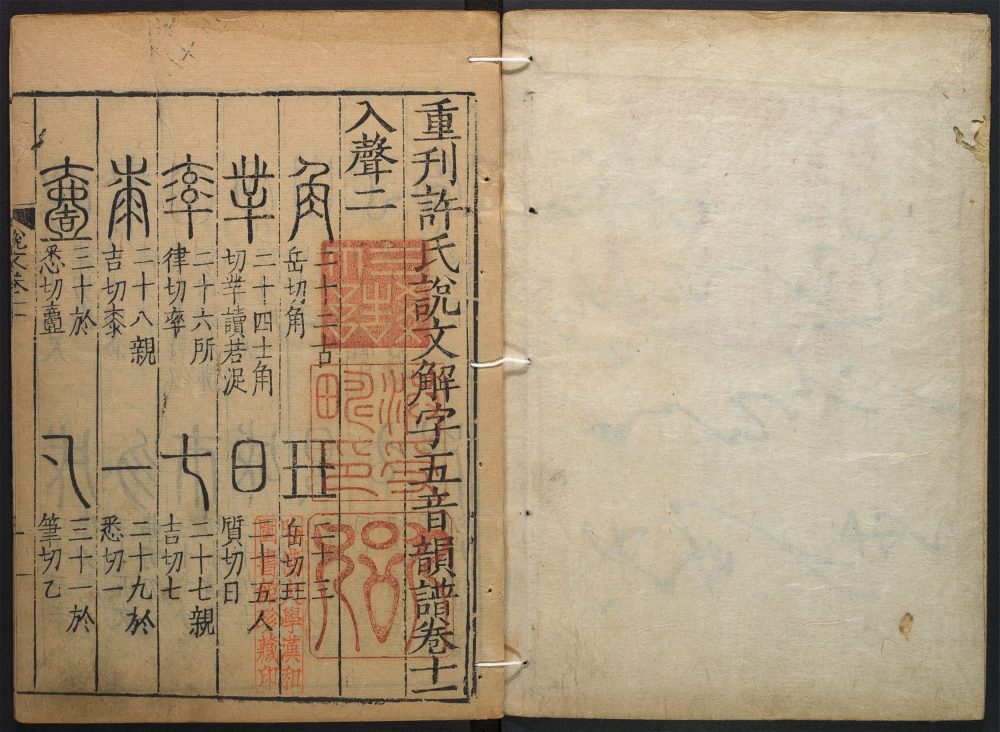 重刊許氏說文解字五音韻譜卷十一
入聲二
角 二十二古
岳切角
玨 二十三
岳切玨
丵 二十四士角
切丵讀若浞
日 二十五人
質切日
率 二十六所
律切率
七 二十七親
吉切七
桼 二十八親
吉切桼
一 二十九於
悉切一
壹 三十於
悉切壹
乙 三十一於
筆切乙
說文卷十一
學漢和
圖書館珍藏印